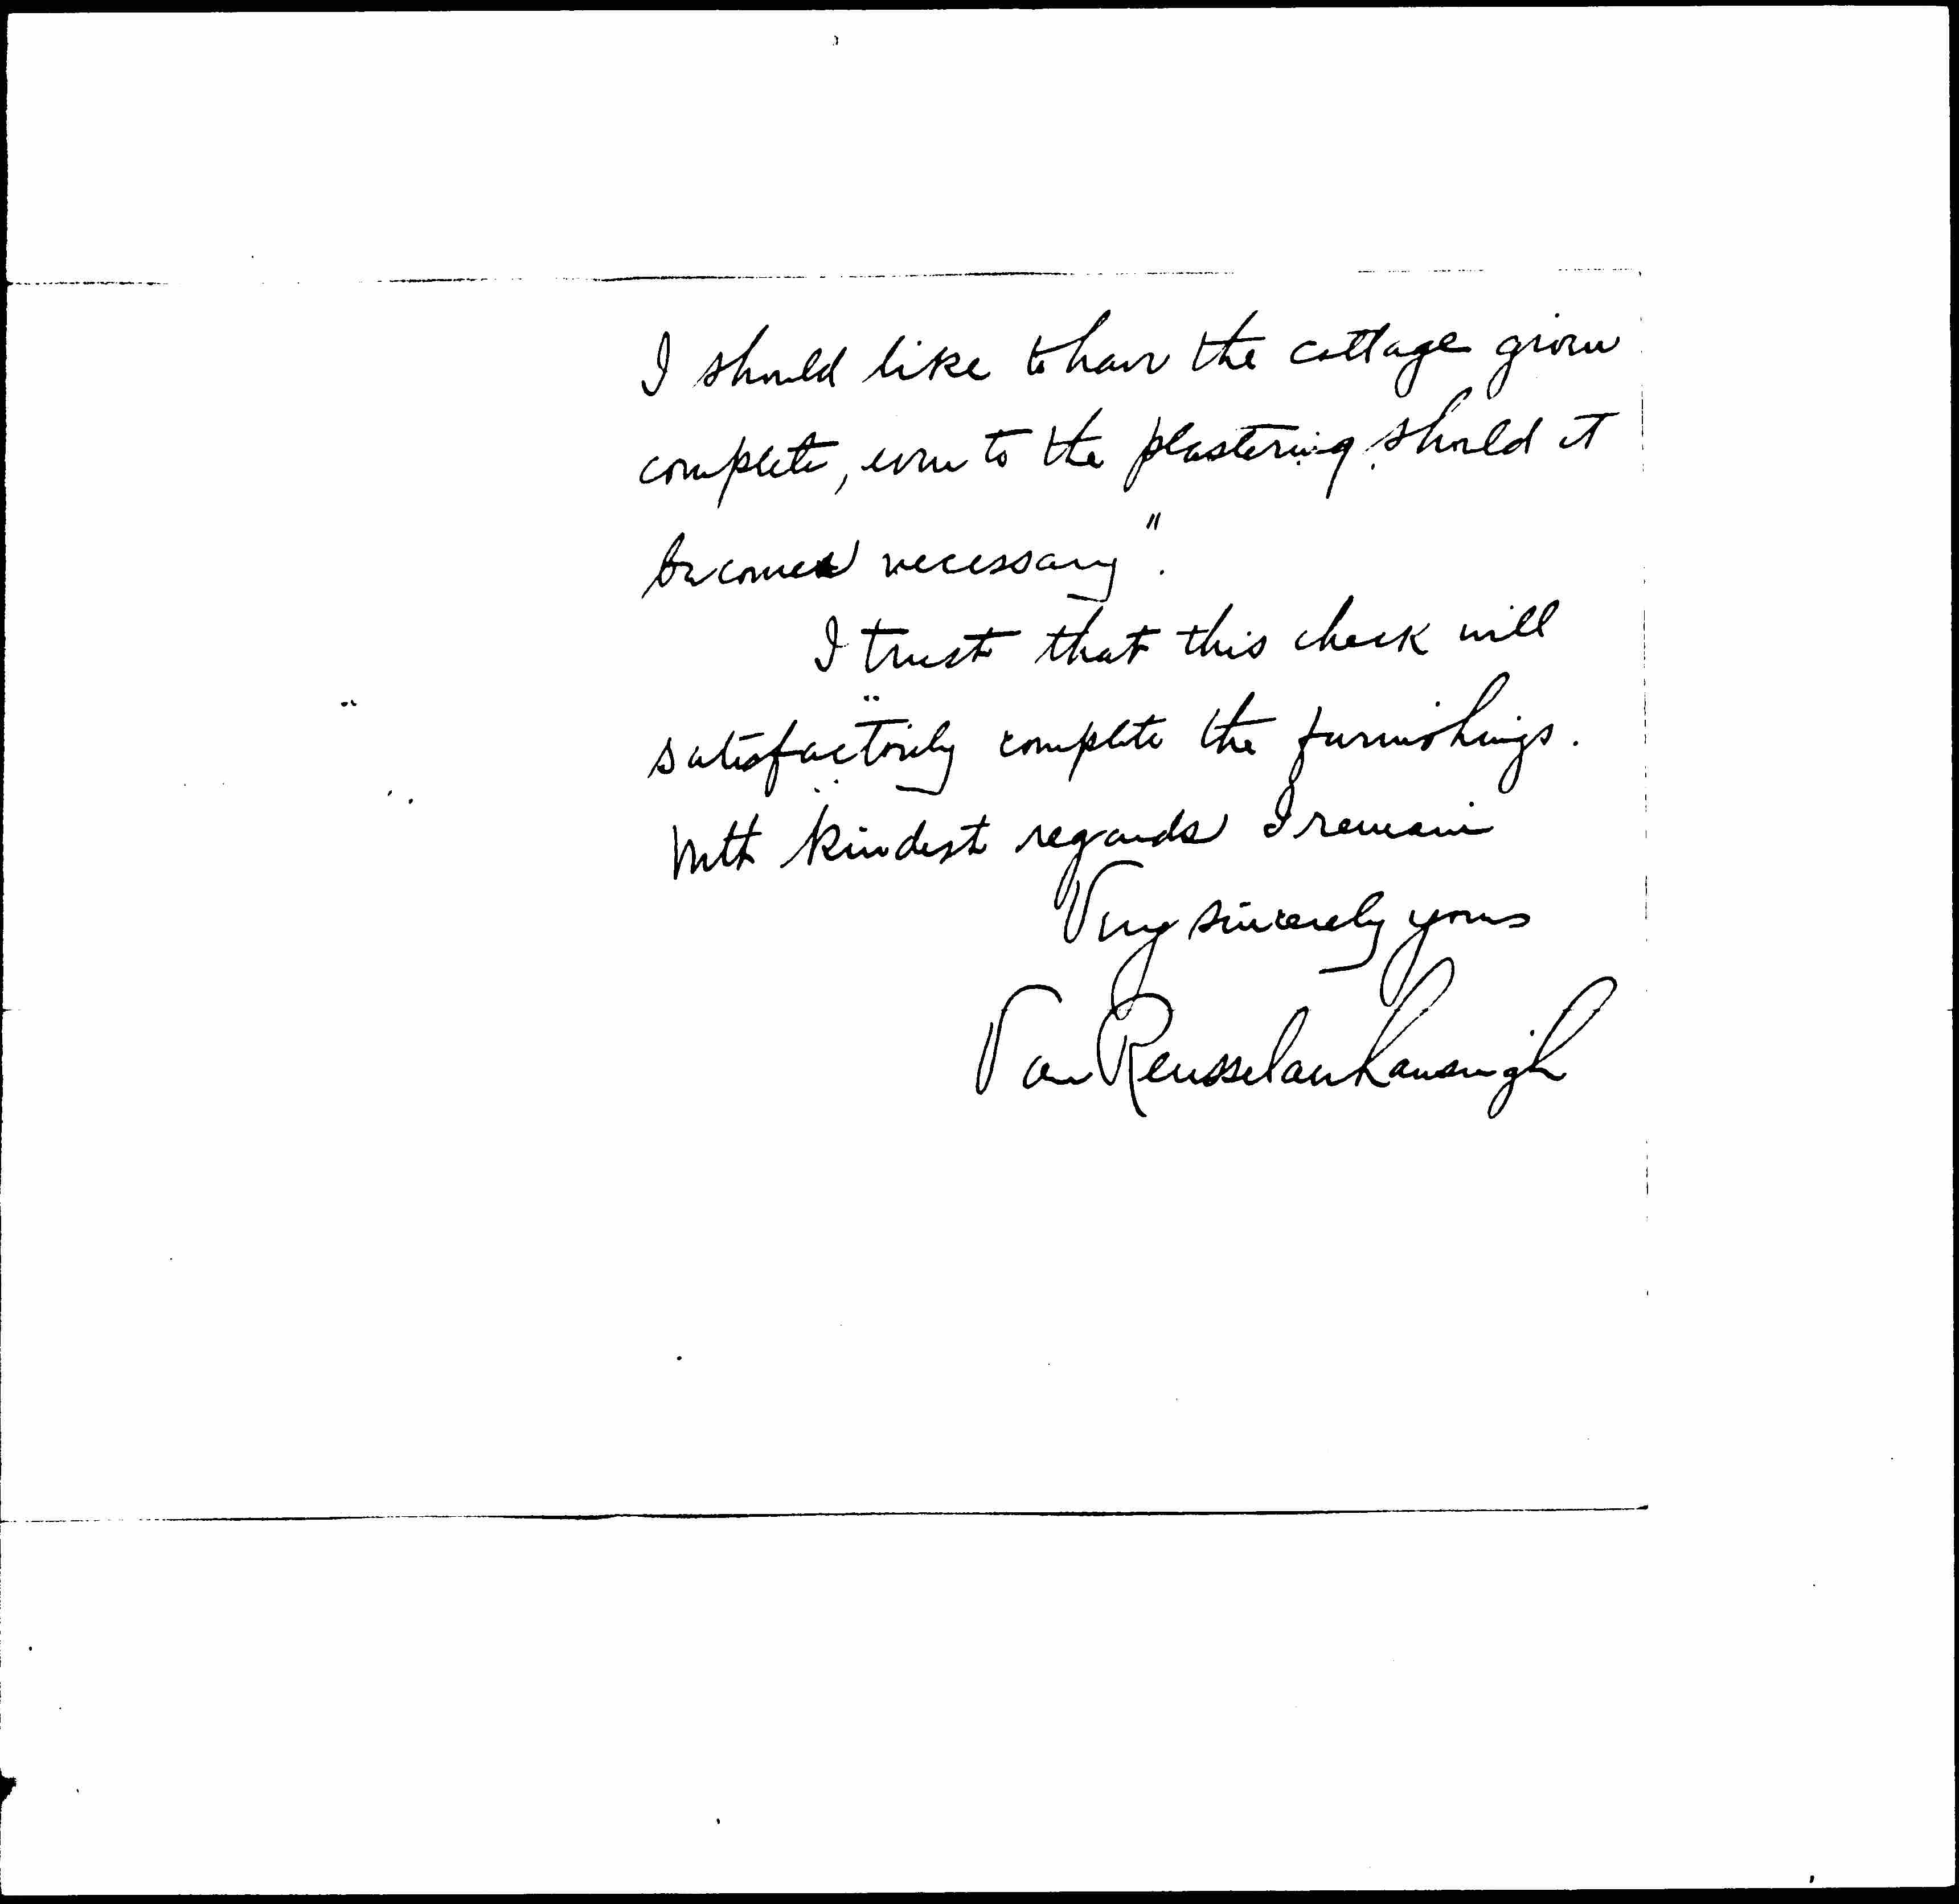 I should like to have the cottage given
complete, even to the plastering should it
become necessary".
I trust that this check will
satisfactorily complete the furnishings.
With kindest regards I remain
Very sincerely yours
Van Rensselaer Lansingh